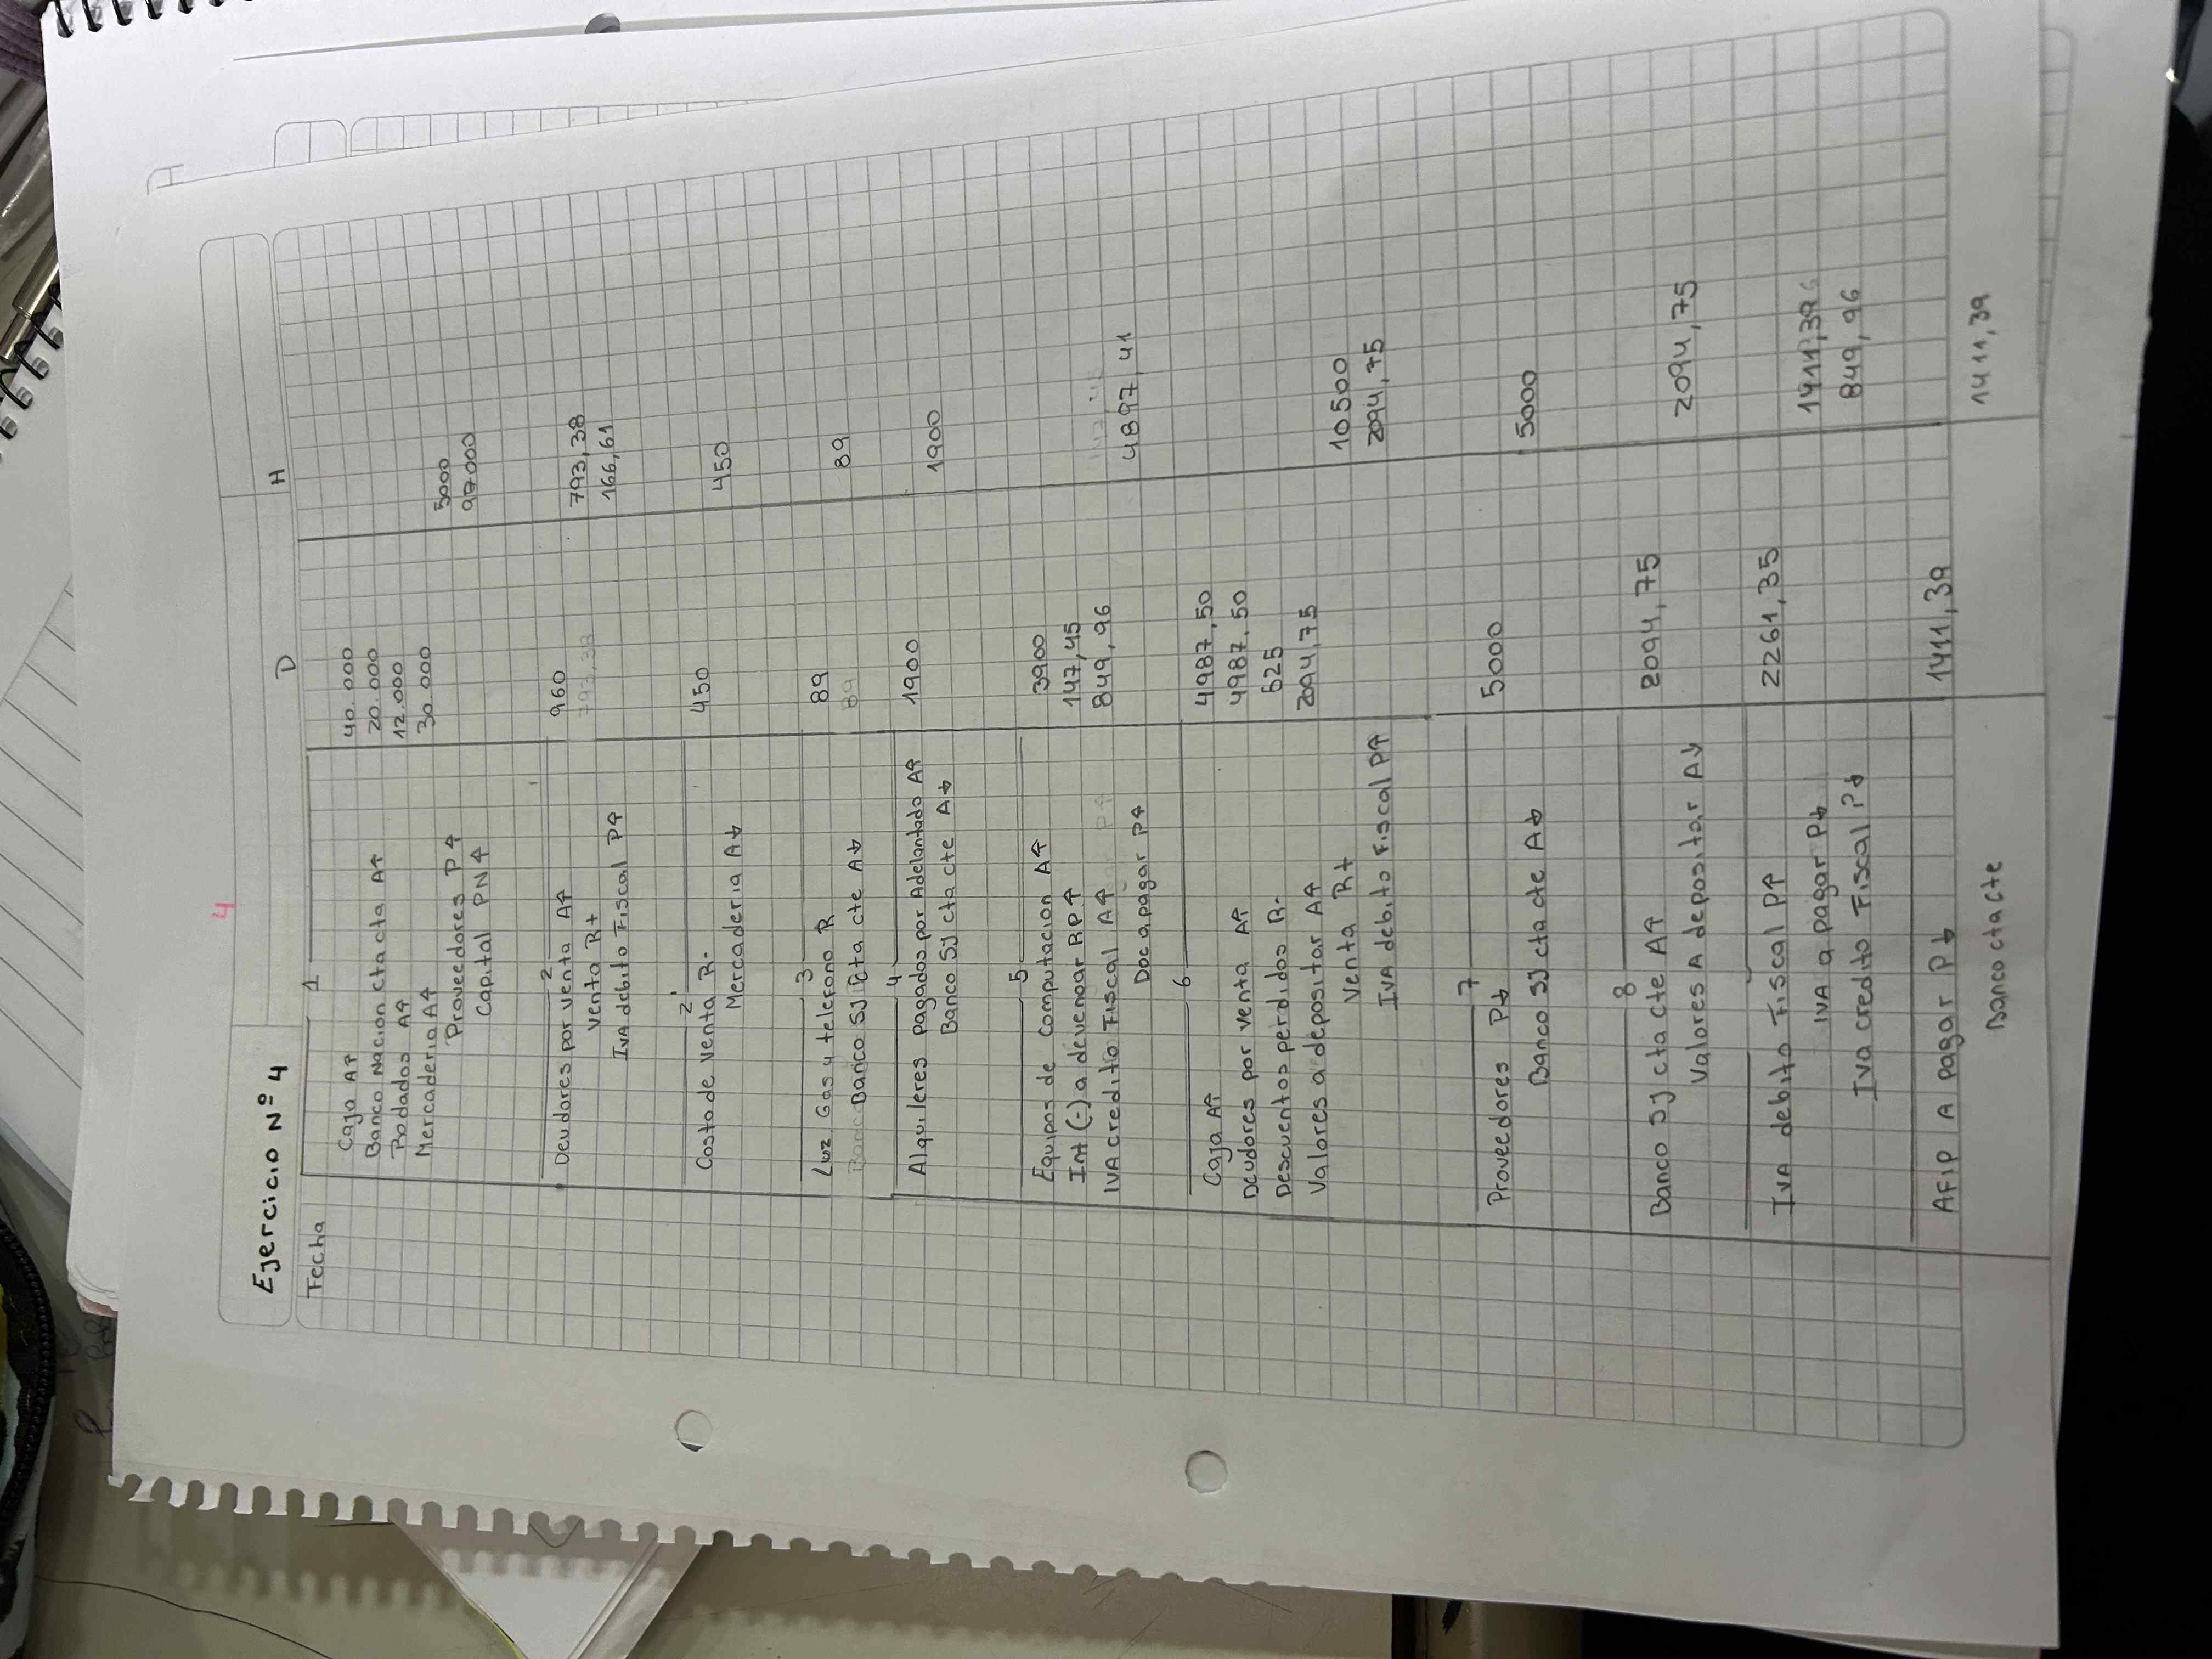 4
Ejercicio Nº 4
Fecha D H
1
Caja A↑ 40.000
Banco Nacion cta cta A↑ 20.000
Rodados A↑ 12.000
Mercaderia A↑ 30.000
Proveedores P↑ 5000
Capital PN↑ 97.000
2
Deudores por venta A↑ 960
Venta R+ 793,38
Iva debito Fiscal P↑ 166,61
2'
Costo de venta R- 450
Mercaderia A↓ 450
3
Luz, Gas y telefono R 89
Banco SJ cta cte A↓ 89
4
Alquileres pagados por Adelantado A↑ 1900
Banco SJ cta cte A↓ 1900
5
Equipos de Computacion A↑ 3900
Int (-) a devengar RP↑ 147,45
IVA credito Fiscal A↑ 849,96
Doc a pagar P↑ 4897,41
6
Caja A↑ 4987,50
Deudores por venta A↑ 4987,50
Descuentos perdidos R- 525
Valores a depositar A↑ 2094,75
Venta R+ 10500
IVA debito Fiscal P↑ 2094,75
7
Proveedores P↓ 5000
Banco SJ cta cte A↓ 5000
8
Banco SJ cta cte A↑ 2094,75
Valores A depositar A↓ 2094,75
IVA debito Fiscal P↑ 2261,35
IVA a pagar P↓ 1411,39
Iva credito Fiscal P↓ 849,96
AFIP A pagar P↓ 1411,39
Banco cta cte 1411,39